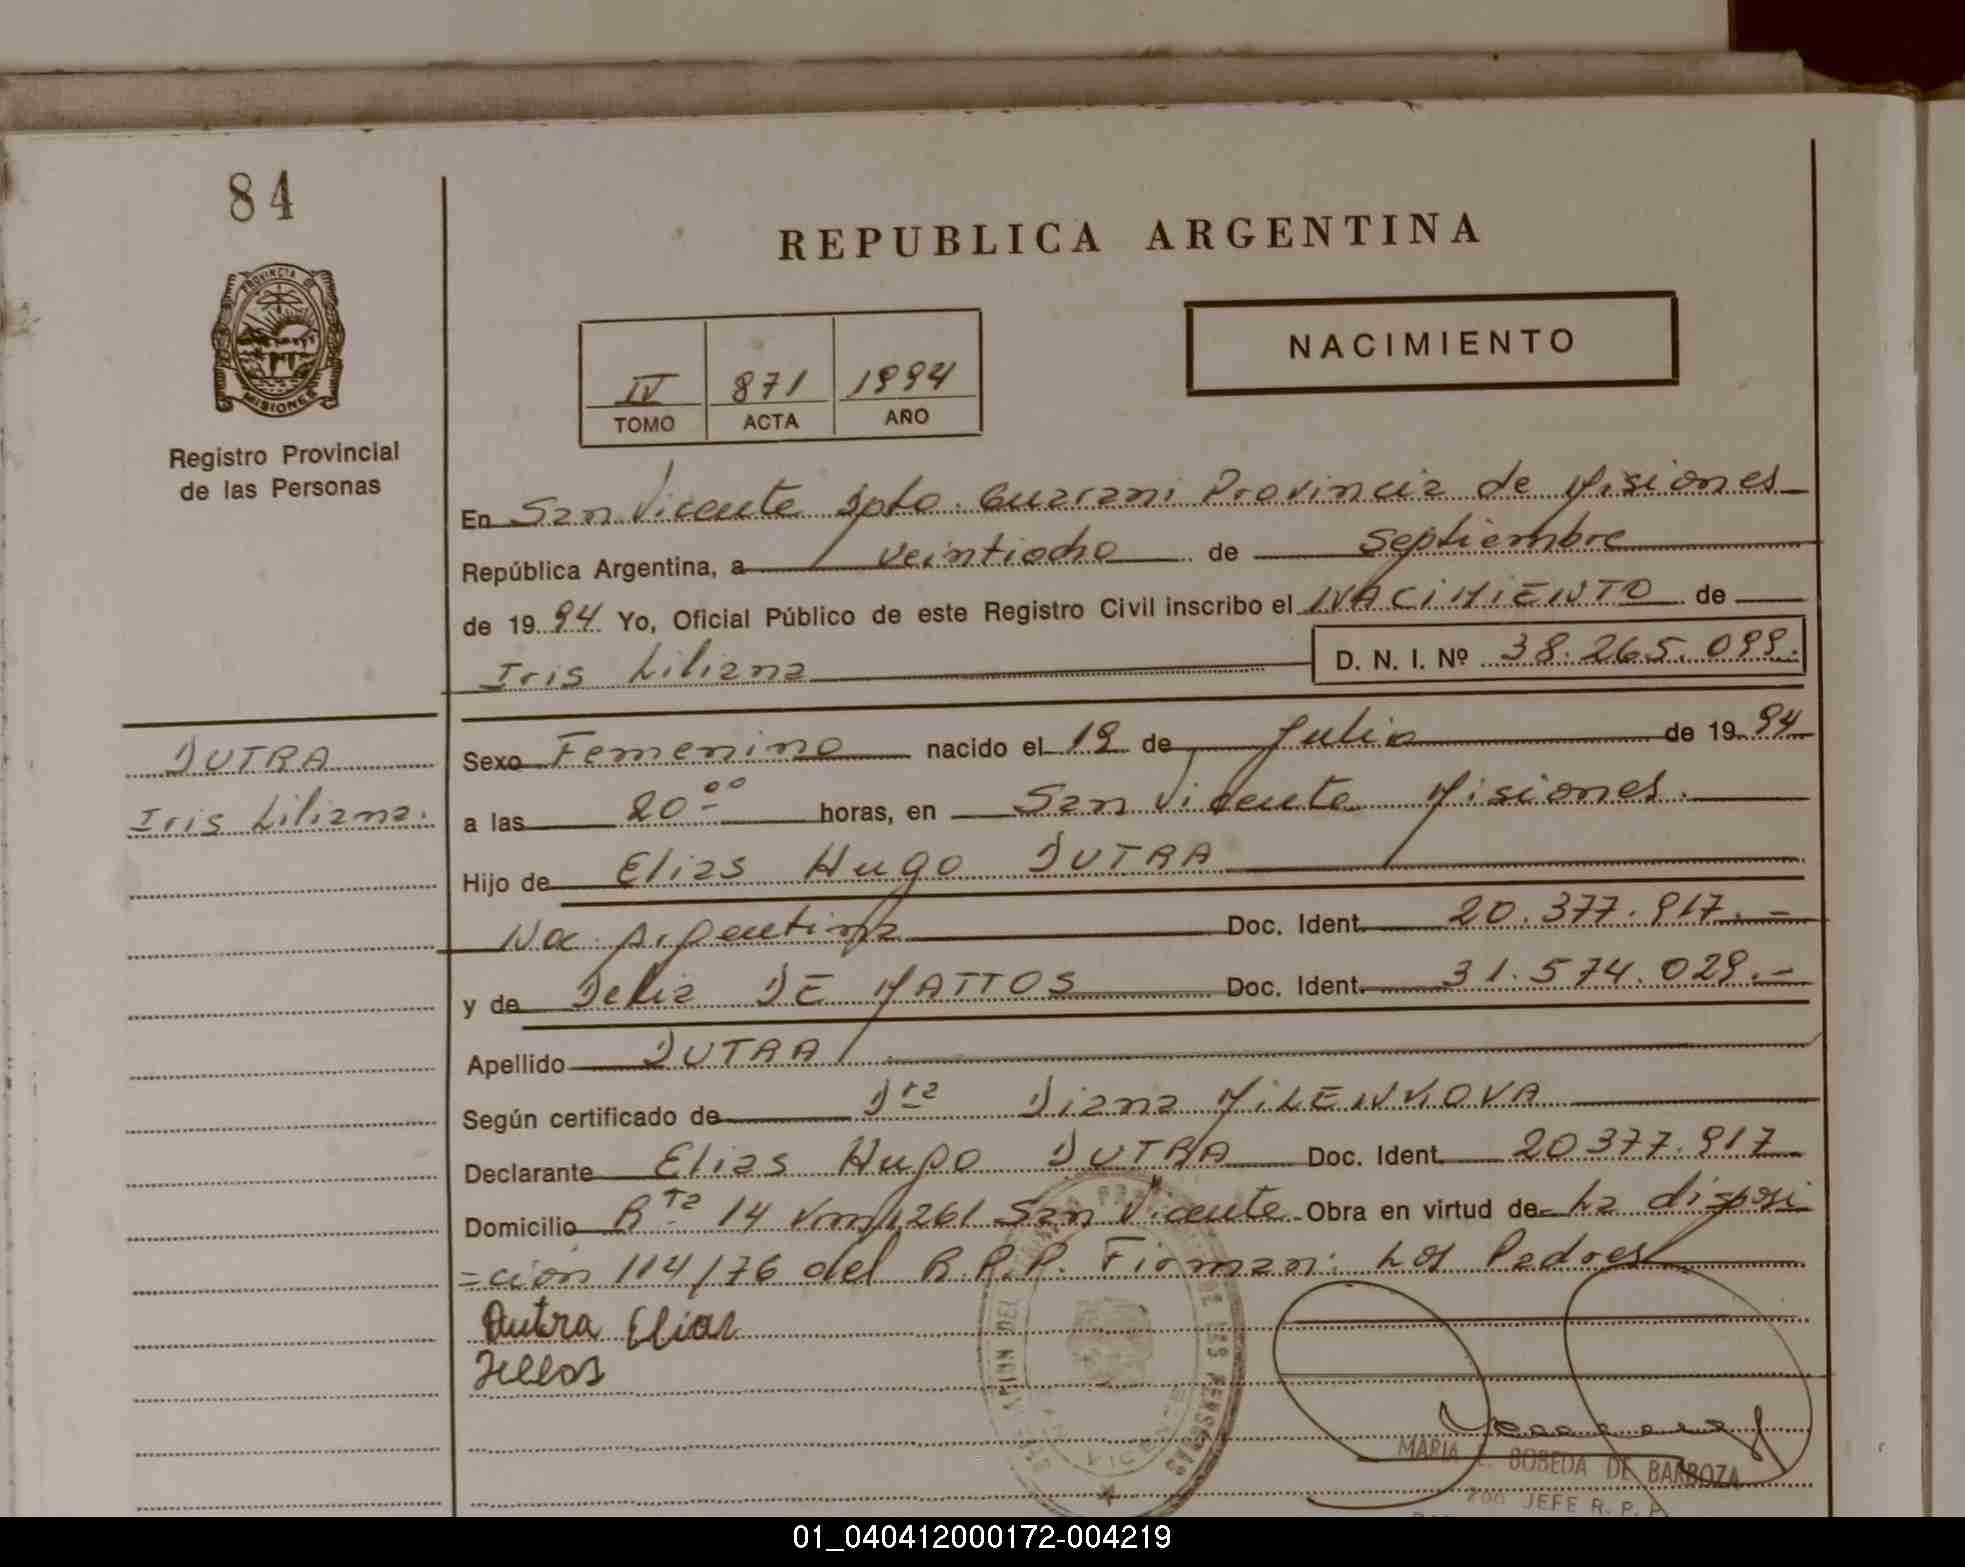 84
REPUBLICA ARGENTINA
PROVINCIA DE
MISIONES
Registro Provincial
de las Personas
IV 871 1994
TOMO ACTA AÑO
NACIMIENTO
En San Vicente Dpto. Guarani Provincia de Misiones
República Argentina, a veintiocho de Septiembre
de 1994 Yo, Oficial Público de este Registro Civil inscribo el NACIMIENTO de
Iris Liliana D. N. I. Nº 38.265.099.
DUTRA
Iris Liliana.
Sexo Femenino nacido el 19 de Julio de 1994
a las 20 00 horas, en San Vicente Misiones.
Hijo de Elias Hugo DUTRA
Nac. Argentina Doc. Ident. 20.377.917.-
y de Delia DE MATTOS Doc. Ident. 31.574.029.-
Apellido DUTRA
Según certificado de Dra Diana MILENKOVA
Declarante Elias Hugo DUTRA Doc. Ident. 20377.917
Domicilio Rta 14 Km 1261 San Vicente Obra en virtud de La disposi
=cion 114/76 del R.P.P. Firman: Los Padres
Dutra Elias
MARIA L. BOBEDA DE BARBOZA
JEFE R. P. P.
01_040412000172-004219